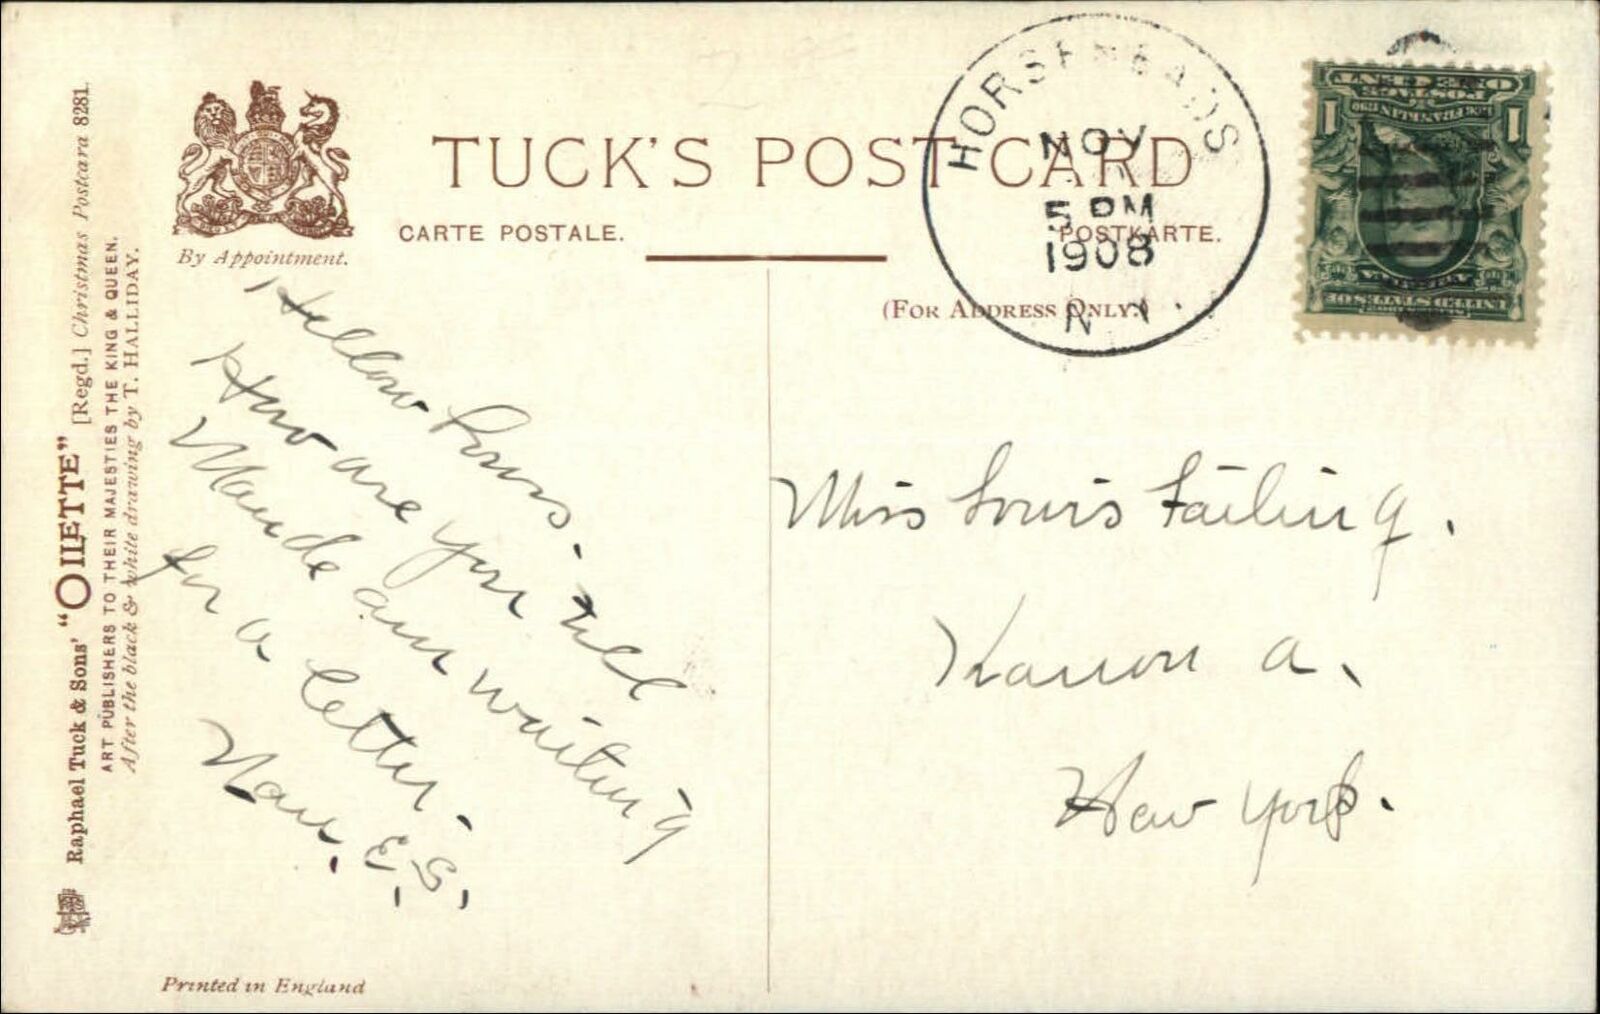 Raphael Tuck & Sons' "OILETTE" [Regd.] Christmas Postcard 8281.
ART PUBLISHERS TO THEIR MAJESTIES THE KING & QUEEN.
After the black & white drawing by T. HALLIDAY.
By Appointment.
TUCK'S POST CARD
CARTE POSTALE.
POSTKARTE.
(FOR ADDRESS ONLY.)
HORSEHEADS
NOV
5 PM
1908
N.Y.
ONE CENT
1 1
Hellow Louis.
How are you tell
Maude am waiting
for a letter.
E. S.
Miss Louis Failing.
Kanona.
New York.
Printed in England